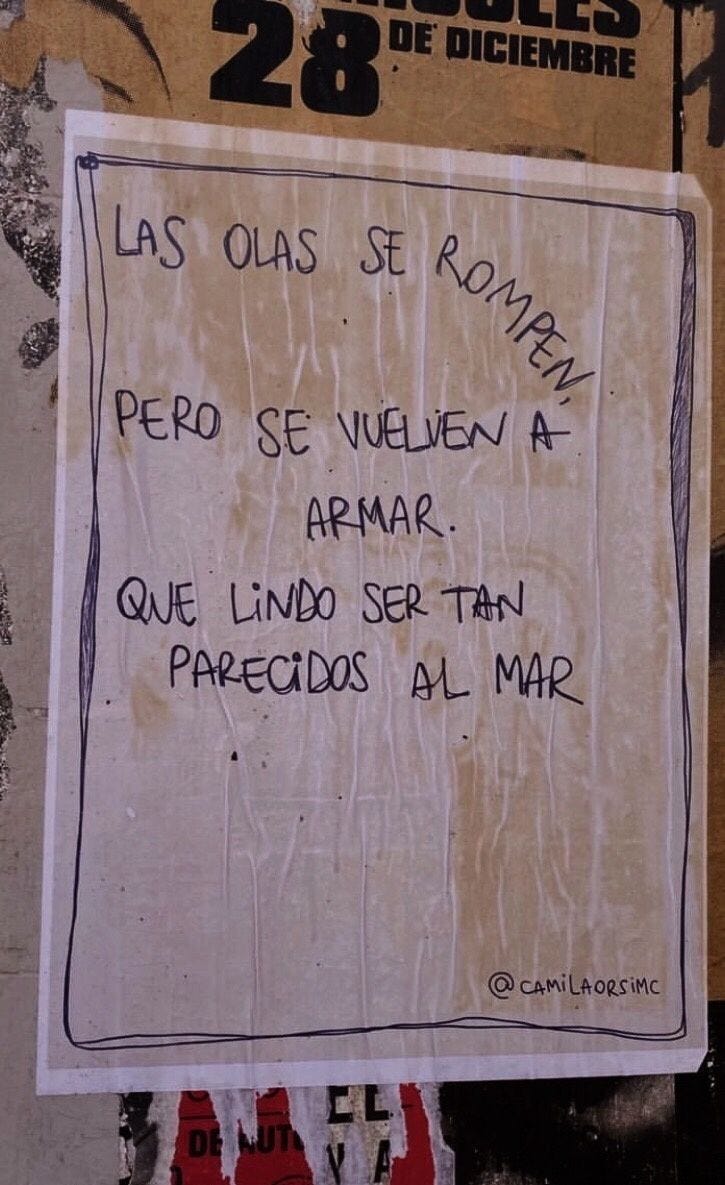 28 DE DICIEMBRE
LAS OLAS SE ROMPEN,
PERO SE VUELVEN A
ARMAR.
QUE LINDO SER TAN
PARECIDOS AL MAR
@CAMILAORSIMC
DE